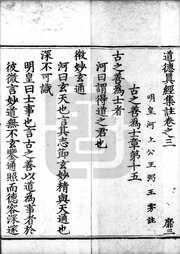 道德真經集註卷之三
明皇河上公王弼王雱註
古之善為士章第十五
古之善為士者
河曰謂得道之君也
微妙玄通
河曰玄天也言其志節玄妙精與天通也
深不可識
明皇曰士事也言古之善以道為事者於
彼微言妙道無不玄鑒通照而德容深邃